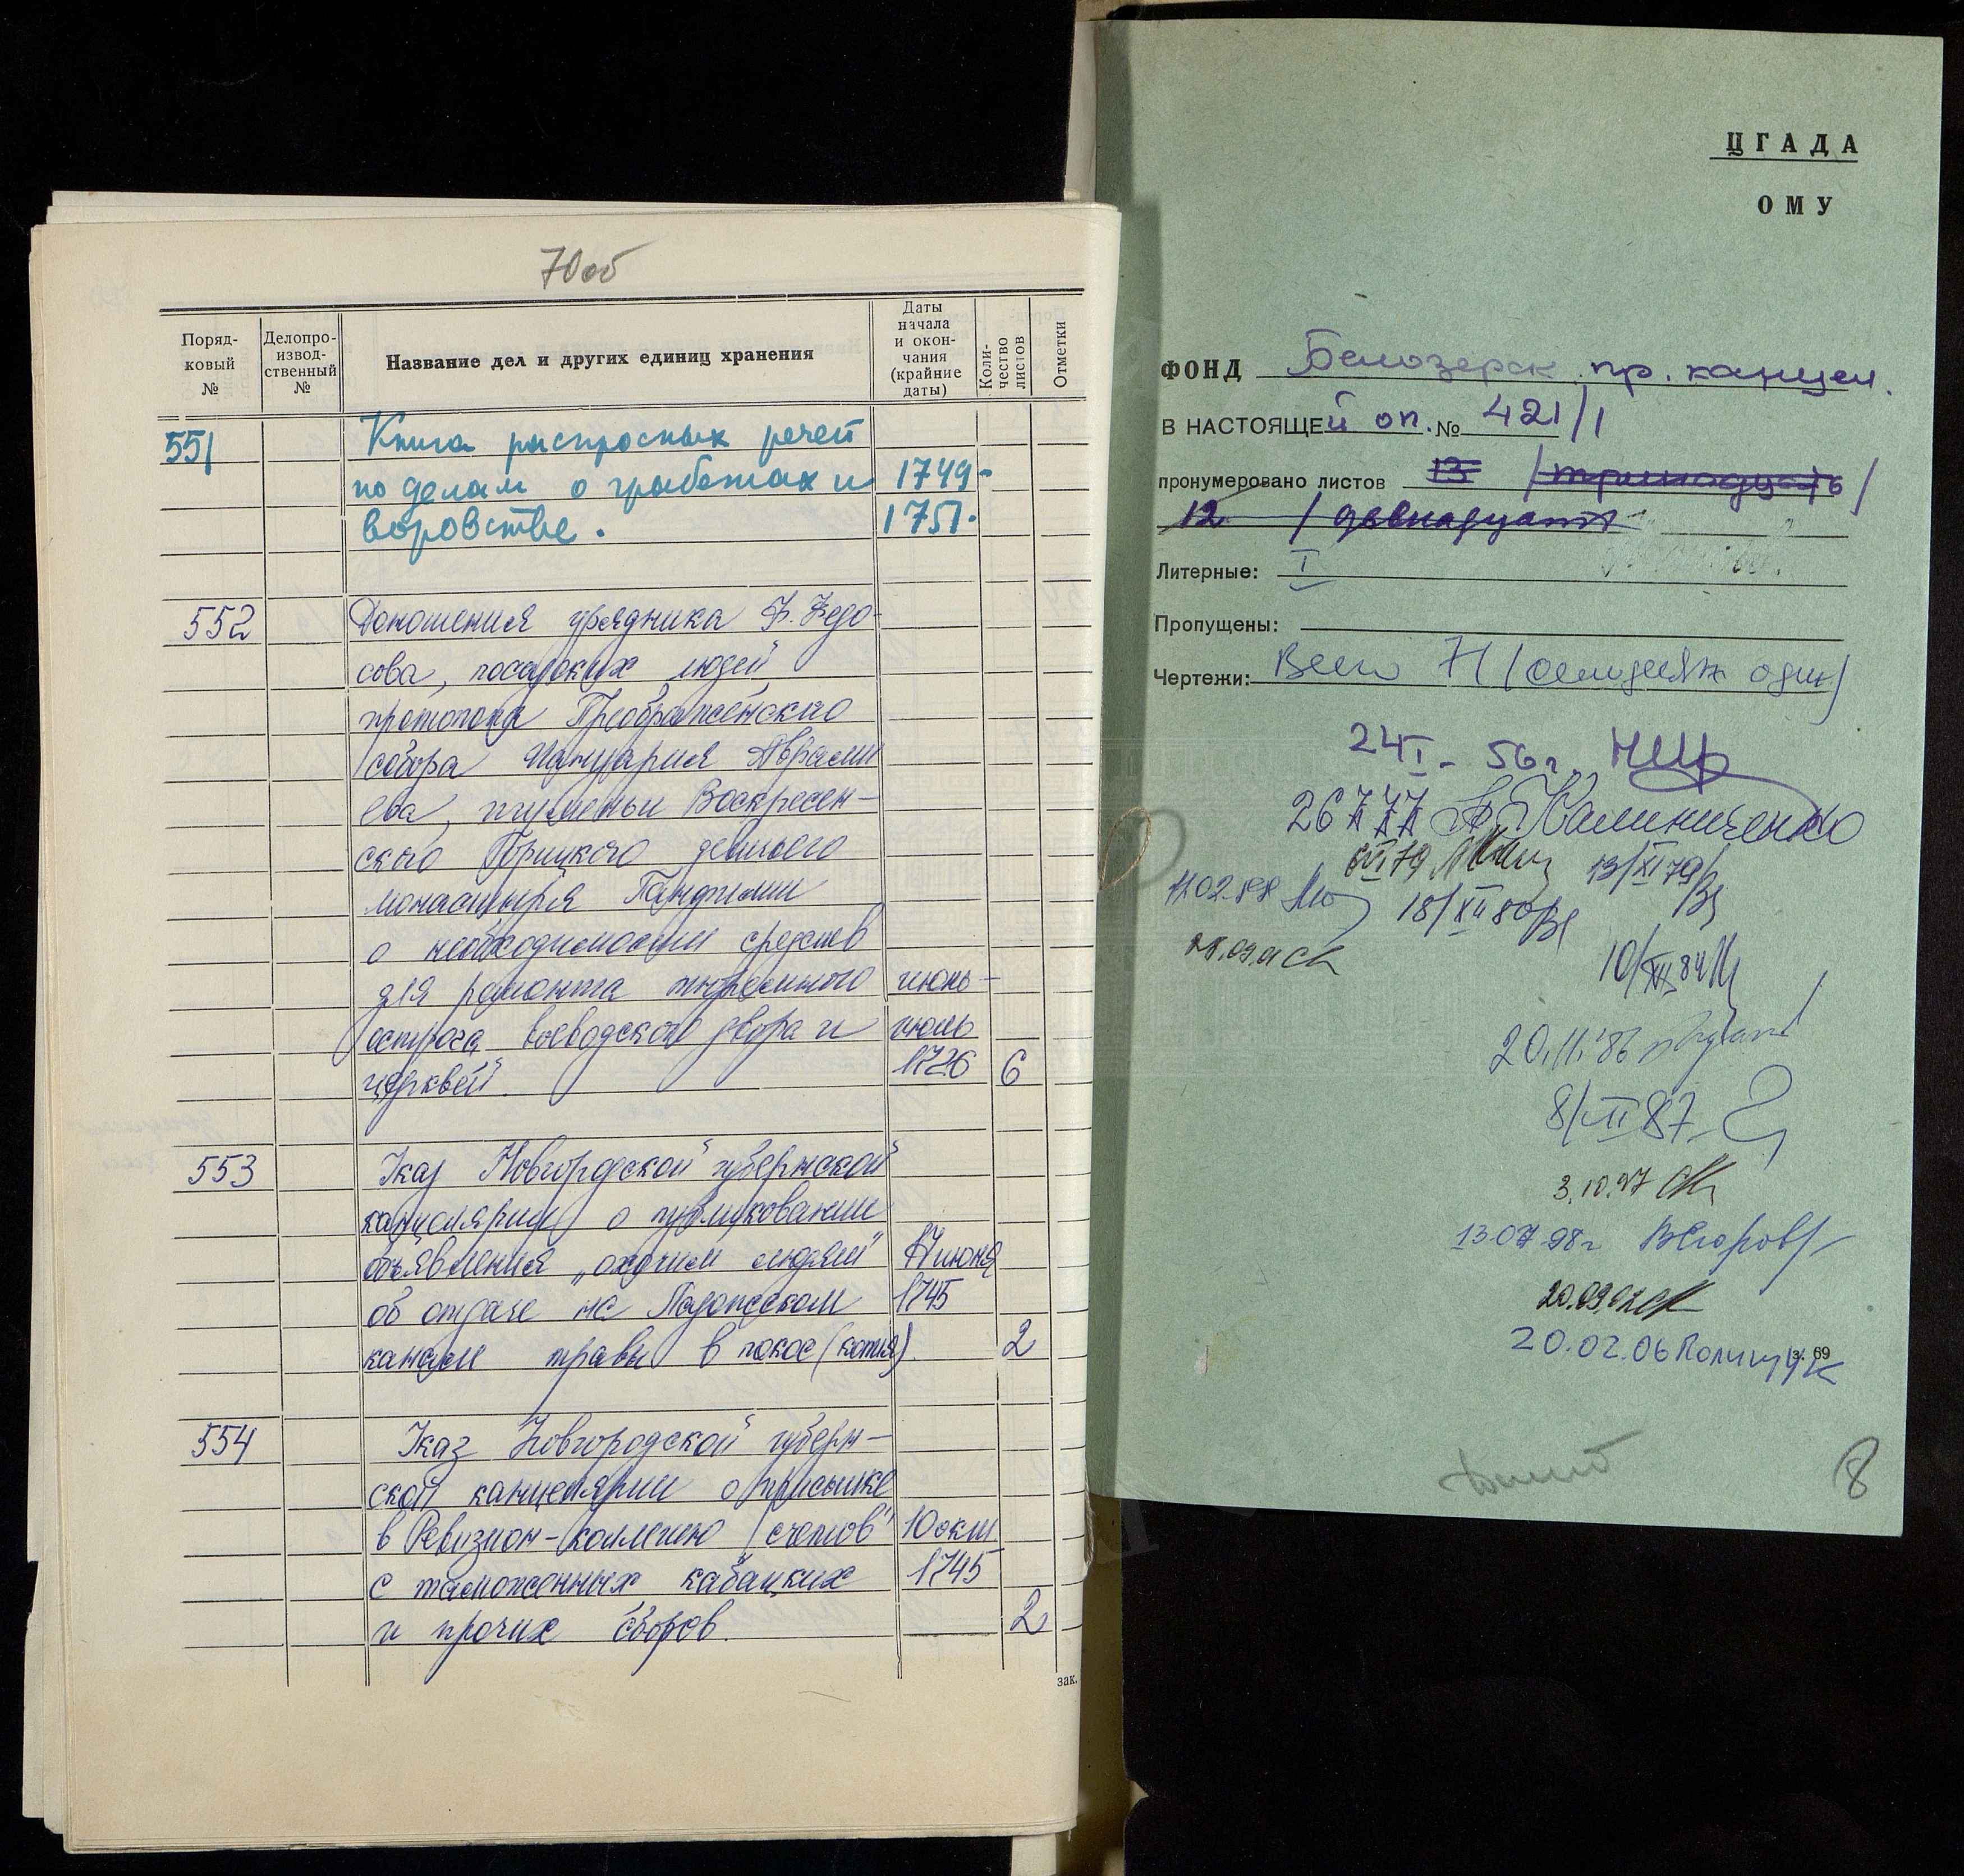 70об
Поряд-
ковый
№
Делопро-
извод-
ственный
№
Название дел и других единиц хранения
Даты
начала
и окон-
чания
(крайние
даты)
Коли-
чество
листов
Отметки
551
Книга распросных речей
по делам о грабежах и
воровстве.
1749-
1751.
552
Доношения урядника Ф. Федо-
сова, посадских людей,
протопопа Преображенского
собора Ианнуария Аврами
ева, игуменьи Воскресен-
ского Горицкого девичьего
монастыря
о необходимости средств
для ремонта тюремного
острога, воеводского двора и
церквей.
июнь-
июль
1726
6
553
Указ Новгородской губернской
канцелярии о публиковании
объявления „охочим людям"
об отдаче на Ладожском
канале травы в покос (копия).
17 июня
1745
2
554
Указ Новгородской губерн-
ской канцелярии о присылке
в Ревизион-коллегию счетов
с таможенных кабацких
и прочих сборов.
10 окт.
1745
2
зак.
ЦГАДА
ОМУ
ФОНД Белозерск. пр. канцел.
В НАСТОЯЩЕЙ оп. № 421/1
пронумеровано листов 13 /тринадцать/
12 /двенадцать
Литерные: I
Пропущены:
Чертежи: Всего 71 (семьдесят один)
24 I - 56 г.
26 Калиниченко
VI 79 13/XI 79
11.02.88 18/XII 80
10/XII 84
20.11.86
8/II 87
3.10.97
13.07.98 г ВЕгоров
20.09.02
20.02.06 Полищук
з. 69
8